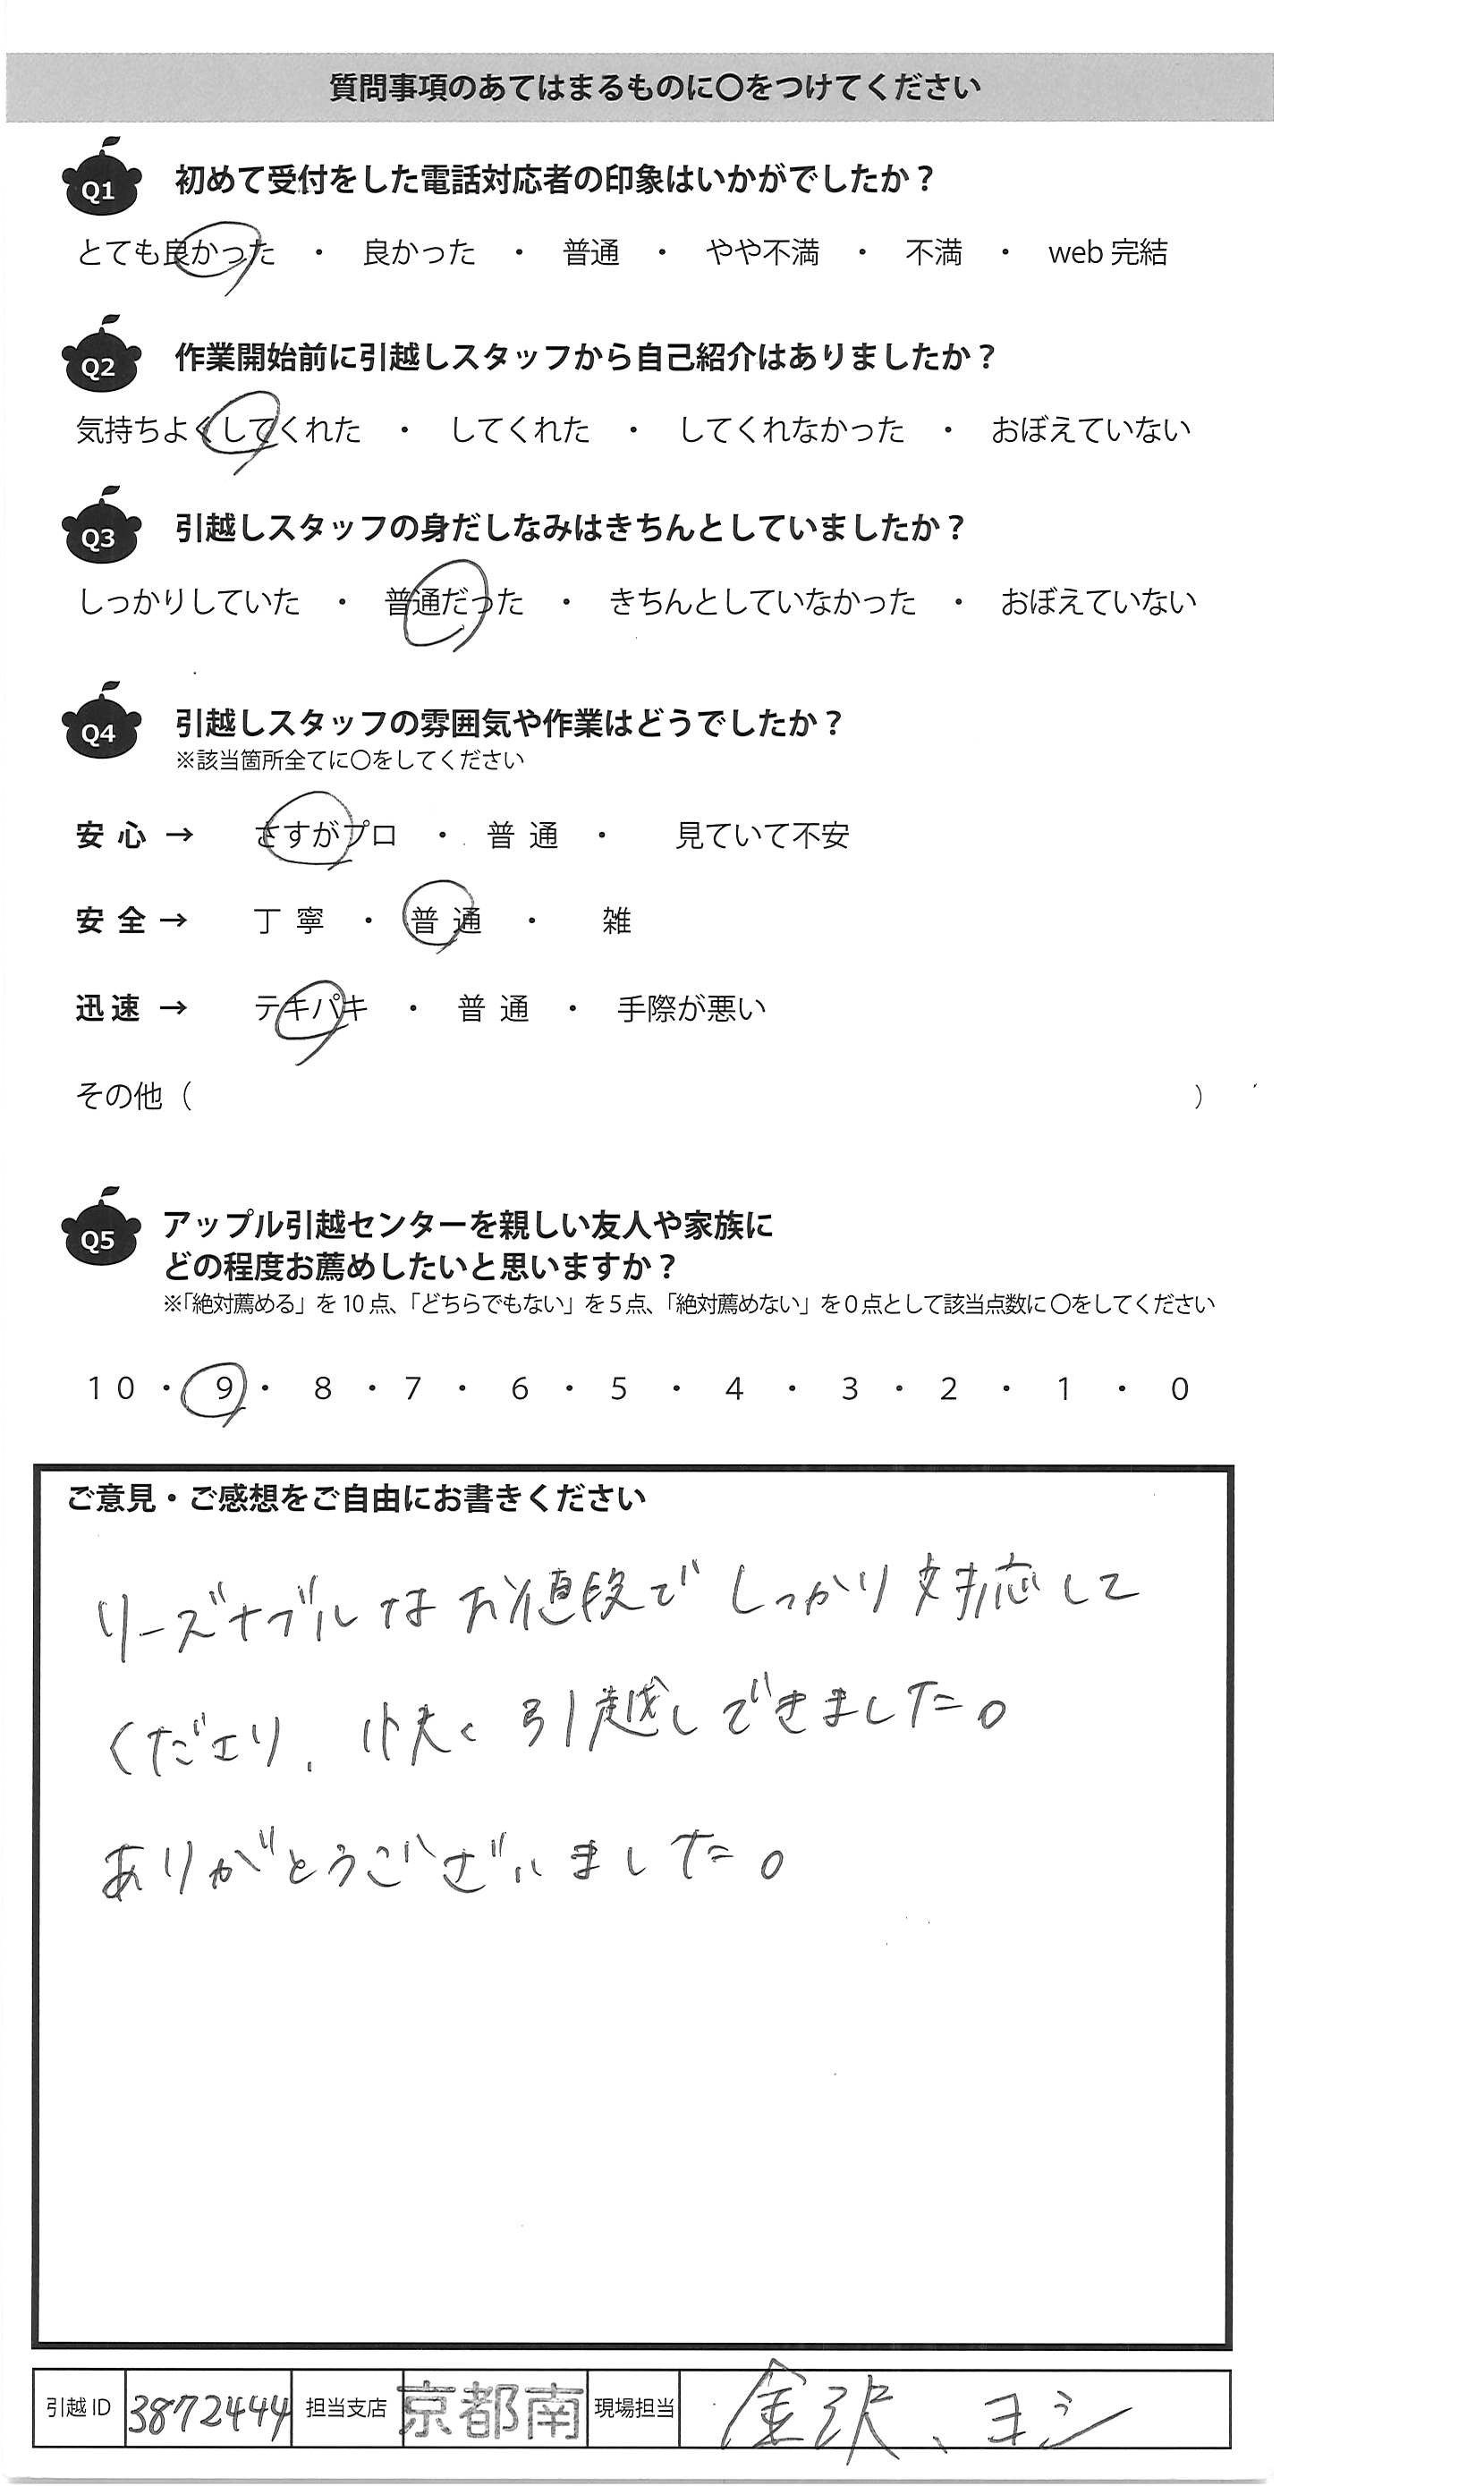 質問事項のあてはまるものに〇をつけてください
Q1 初めて受付をした電話対応者の印象はいかがでしたか？
とても良かった ・ 良かった ・ 普通 ・ やや不満 ・ 不満 ・ web 完結
Q2 作業開始前に引越しスタッフから自己紹介はありましたか？
気持ちよくしてくれた ・ してくれた ・ してくれなかった ・ おぼえていない
Q3 引越しスタッフの身だしなみはきちんとしていましたか？
しっかりしていた ・ 普通だった ・ きちんとしていなかった ・ おぼえていない
Q4 引越しスタッフの雰囲気や作業はどうでしたか？
※該当箇所全てに〇をしてください
安心 → さすがプロ ・ 普通 ・ 見ていて不安
安全 → 丁寧 ・ 普通 ・ 雑
迅速 → テキパキ ・ 普通 ・ 手際が悪い
その他（ ）
Q5 アップル引越センターを親しい友人や家族に
どの程度お薦めしたいと思いますか？
※「絶対薦める」を 10 点、「どちらでもない」を 5 点、「絶対薦めない」を 0 点として該当点数に〇をしてください
10 ・ 9 ・ 8 ・ 7 ・ 6 ・ 5 ・ 4 ・ 3 ・ 2 ・ 1 ・ 0
ご意見・ご感想をご自由にお書きください
リーズナブルなお値段でしっかり対応して
くださり、快く引越しできました。
ありがとうございました。
引越 ID 3872444 担当支店 京都南 現場担当 金沢、ヨシ